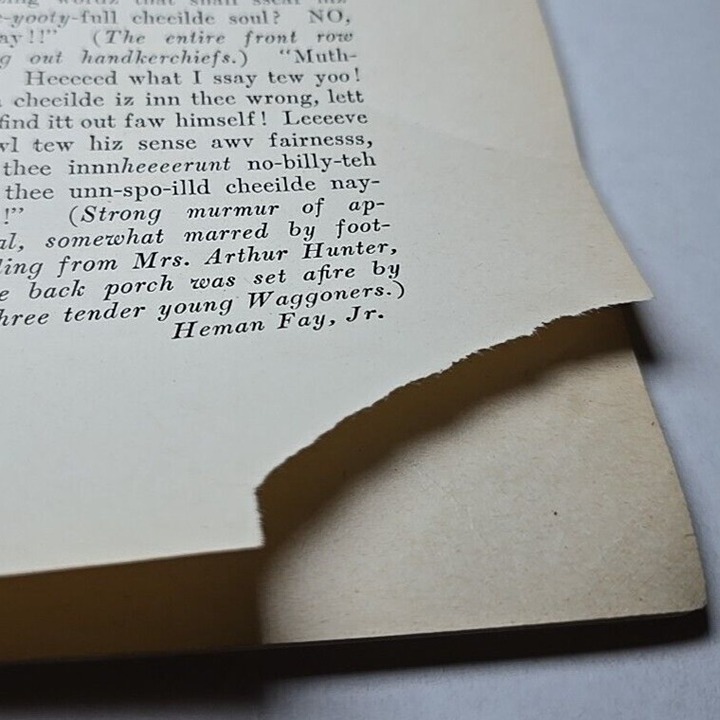 words that shall
-yooty-full cheeilde soul? NO,
ay!!” (The entire front row
g out handkerchiefs.) “Muth-
Heeeeed what I ssay tew yoo!
cheeilde iz inn thee wrong, lett
find itt out faw himself! Leeeeve
wl tew hiz sense awv fairnesss,
thee innnheeeerunt no-billy-teh
thee unn-spo-illd cheeilde nay-
!” (Strong murmur of ap-
al, somewhat marred by foot-
ling from Mrs. Arthur Hunter,
e back porch was set afire by
hree tender young Waggoners.)
Heman Fay, Jr.